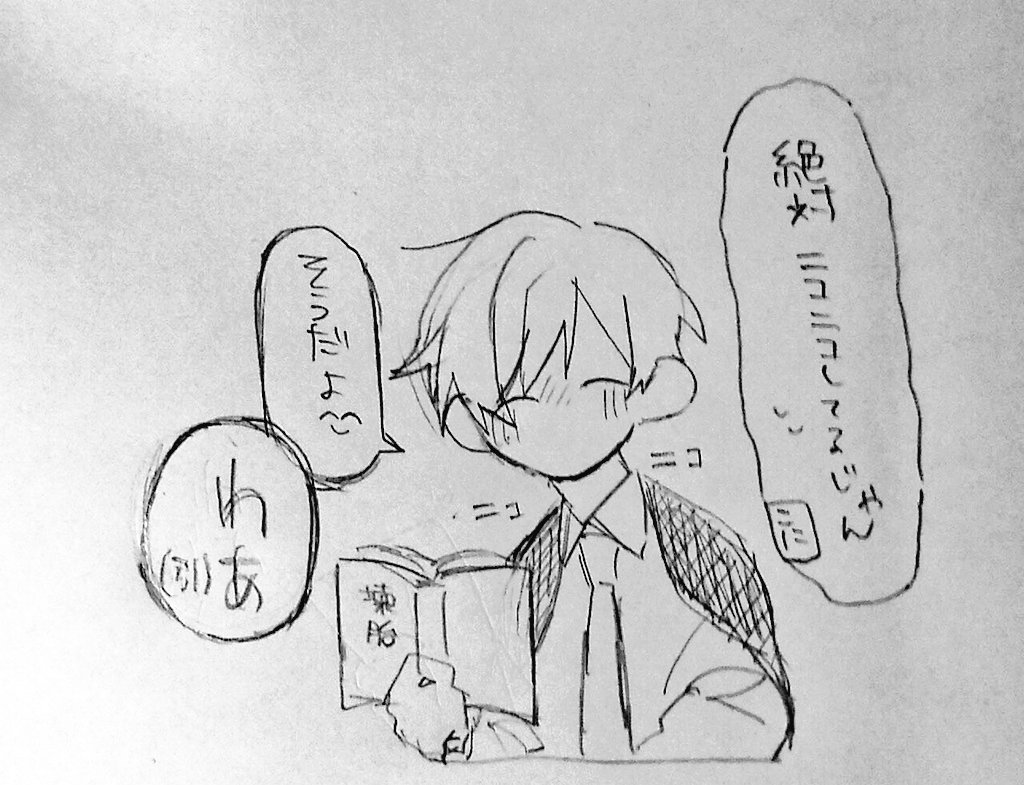 絶対ニコニコしてるじゃん
そうだよ
わあ
(引)
ニコ
ニコ